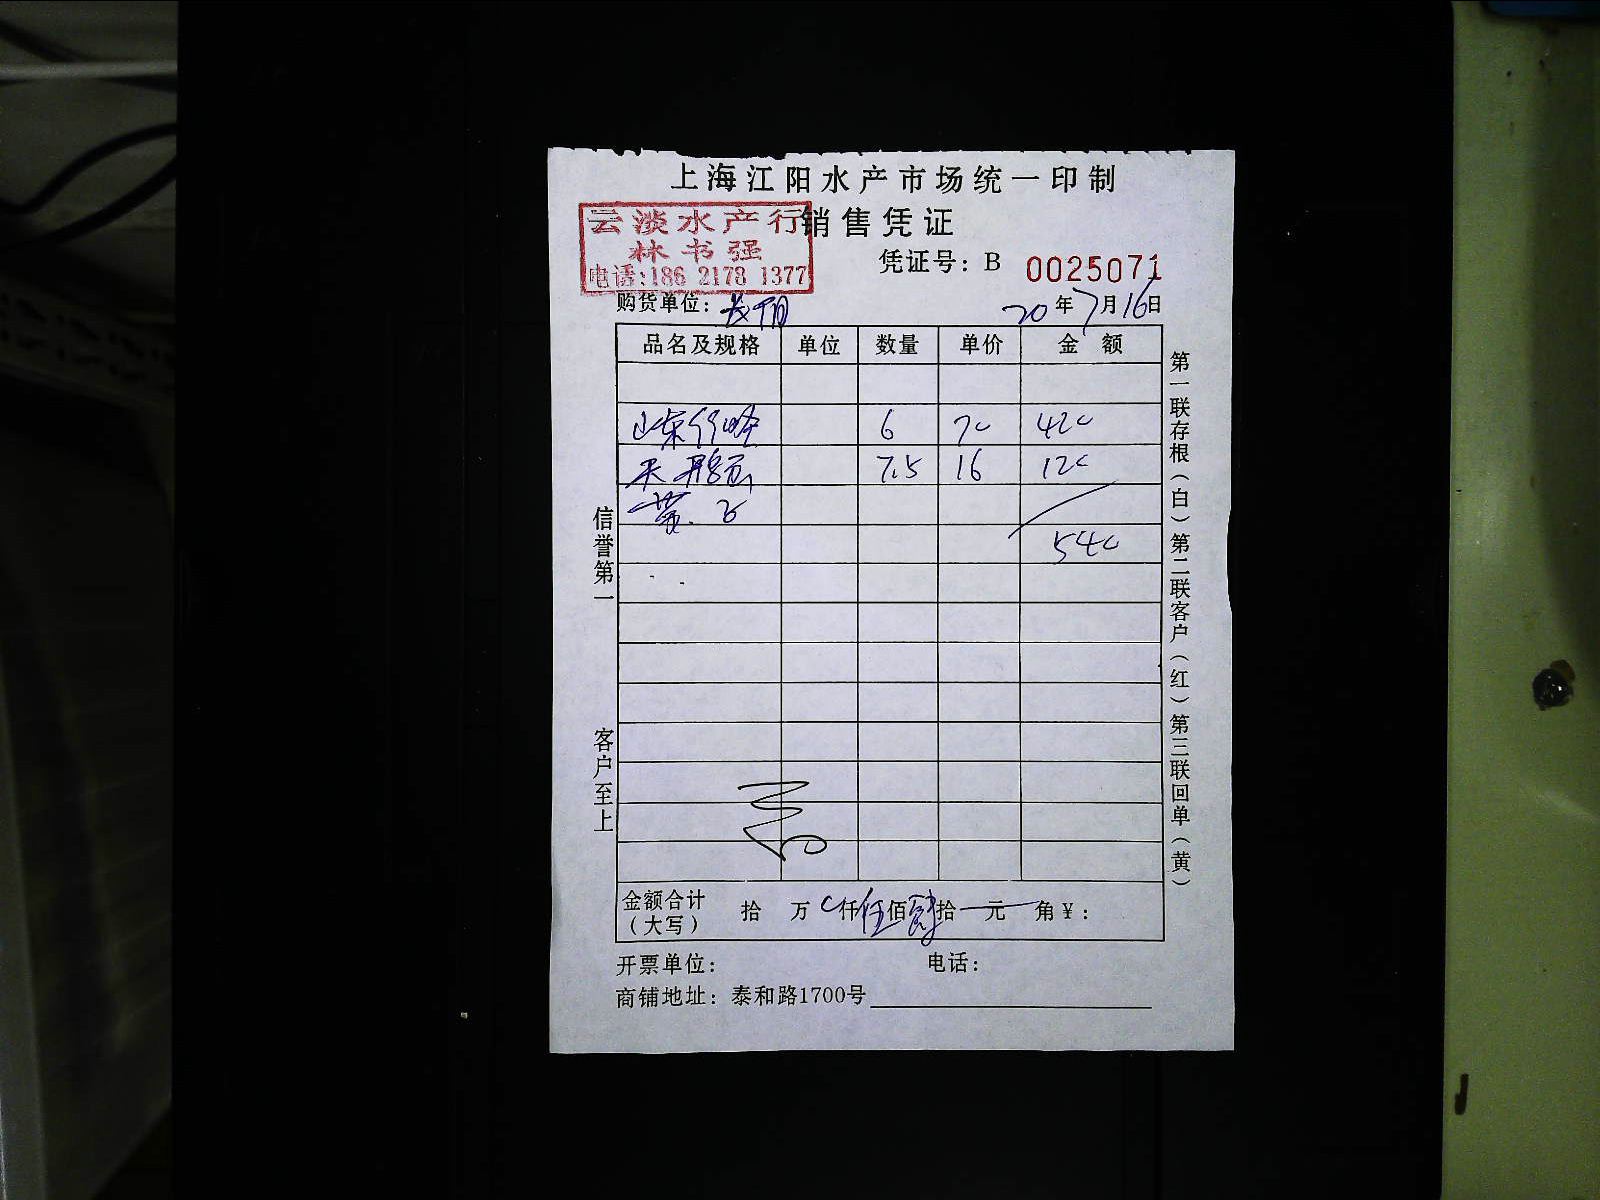 上海江阳水产市场统一印制
云淡水产行
销售凭证
林书强
凭证号：B 0025071
电话:186 2178 1377
购货单位：
20年7月16日
品名及规格 单位 数量 单价 金 额
山东 6 70 420
7.5 16 120
540
信誉第一
客户至上
第一联存根（白）第二联客户（红）第三联回单（黄）
金额合计（大写） 拾 万 仟 伍佰 肆拾 元 角 ¥：
开票单位： 电话：
商铺地址：泰和路1700号